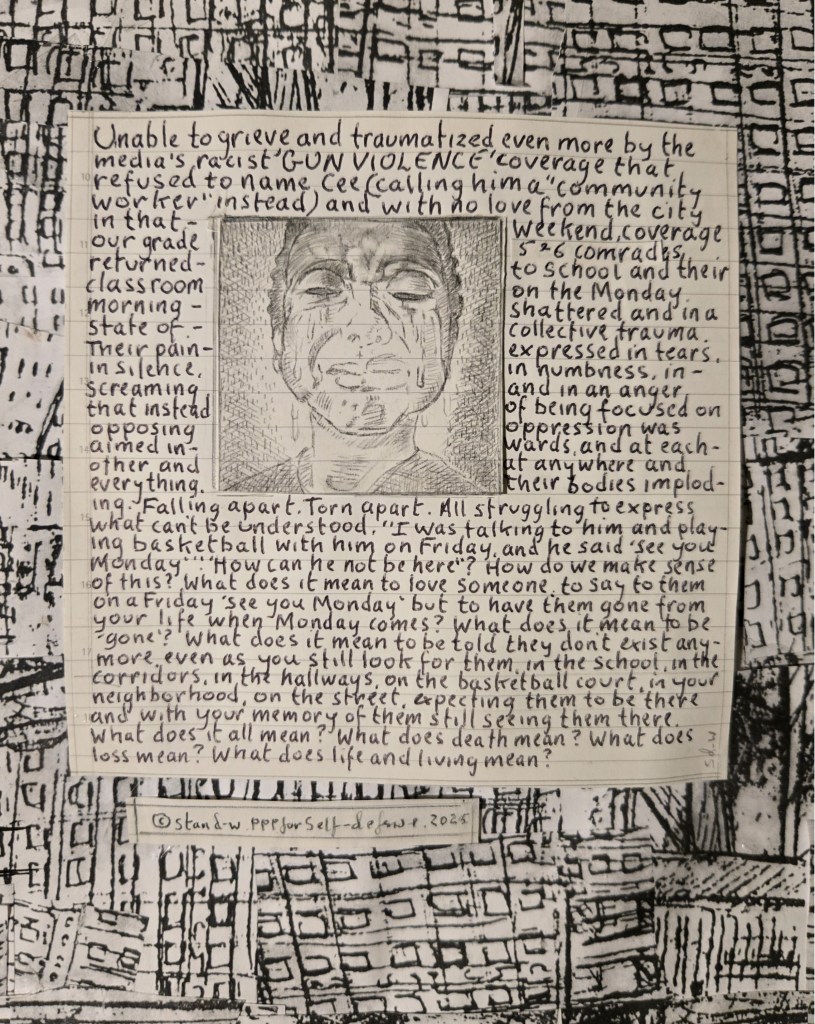 Unable to grieve and traumatized even more by the
media's racist "GUN VIOLENCE" coverage that
refused to name Cee (calling him a "community
worker" instead) and with no love from the city
in that - weekend, coverage
our grade 5 & 6 comrades,
returned - to school and their
classroom on the Monday
morning - shattered and in a
state of - collective trauma.
Their pain - expressed in tears,
in silence, in numbness, in -
screaming and in an anger
that instead of being focused on
opposing oppression was
aimed in - wards, and at each -
other and at anywhere and
everything, their bodies implod-
ing. Falling apart. Torn apart. All struggling to express
what can't be understood. "I was talking to him and play-
ing basketball with him on Friday, and he said 'see you
Monday'": "How can he not be here"? How do we make sense
of this? What does it mean to love someone, to say to them
on a Friday 'see you Monday' but to have them gone from
your life when Monday comes? What does it mean to be
"gone"? What does it mean to be told they don't exist any-
more even as you still look for them, in the school, in the
corridors, in the hallways, on the basketball court, in your
neighborhood, on the street, expecting them to be there
and with your memory of them still seeing them there.
What does it all mean? What does death mean? What does
loss mean? What does life and living mean?
©stand-w.PPPforSelf-defense.2025